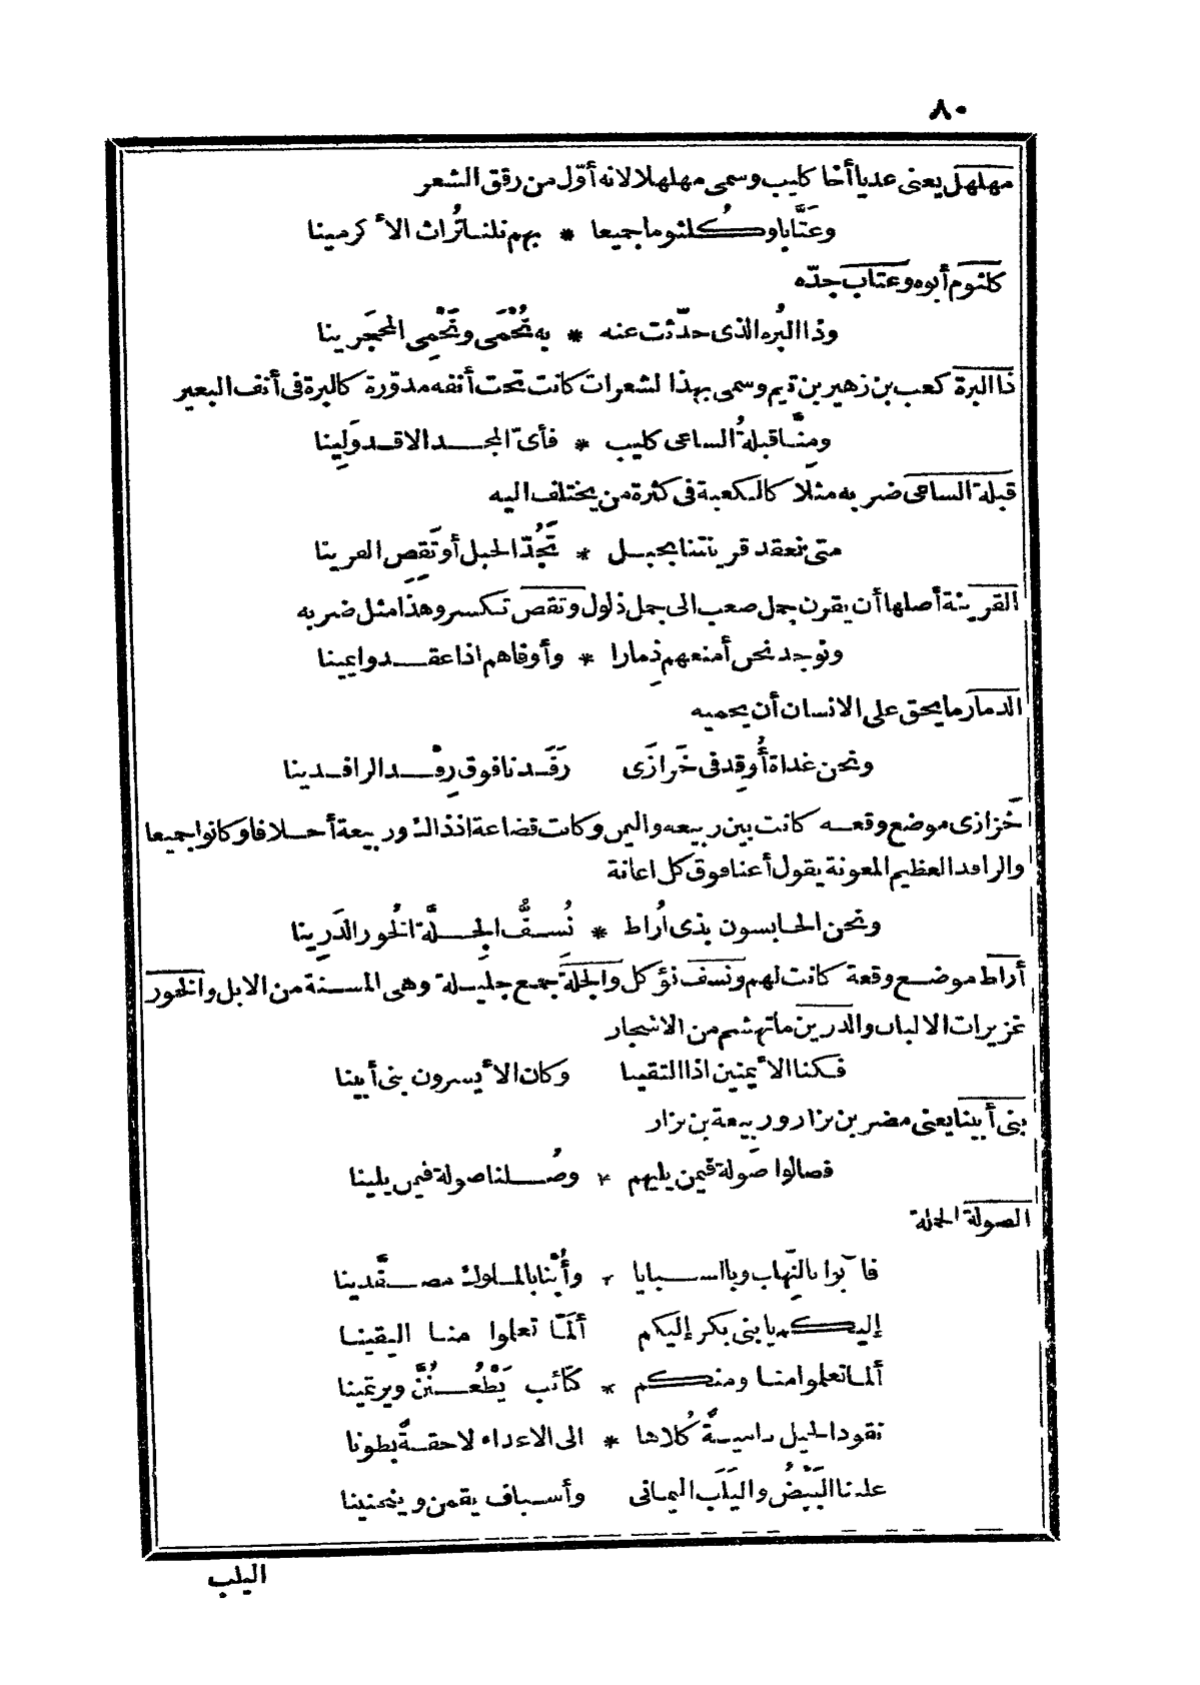 ٨٠
مهلهل يعنى عديا أخا كليب وسمى مهلهلا لانه أوّل من رقق الشعر
وعَتَّابا وكُلثوما جميعا * بهم نلنا تُراث الأكرمينا
كلثوم أبوه وعتاب جدّه
وذا البُره الذى حدّثت عنه * به نُحْمَى ونَحْمِى المحجَرينا
ذا البرة كعب بن زهير بن تيم وسمى بهذا لشعرات كانت تحت أنفه مدوّرة كالبرة فى أنف البعير
ومِنَّا قبلهُ الساعى كليب * فأىّ المجد الاقد وَلِينا
قبلة الساعى ضربه مثلا كالكعبة فى كثرة من يختلف اليه
متى نعقد قرينتنا بحبل * نَجُدّ الحبل أو تَقِصِ القرينا
القرينة أصلها أن يقرن جمل صعب الى جمل ذلول وتقص تكسر وهذا مثل ضربه
ونوجد نحن أمنعهم ذِمارا * وأوفاهم اذا عقدوا يمينا
الدمار ما يحق على الانسان أن يحميه
ونحن غداة أُوقِد فى خَرازَى رَفَدنا فوق رِفْد الرافدينا
خَزازى موضع وقعه كانت بين ربيعه واليمن وكانت قضاعة اذ ذاك وربيعة أحلافا وكانوا جميعا
والرافد العظيم المعونة يقول أعنا فوق كل اعانة
ونحن الحابسون بذى اُراط * نُسفُّ الجِلَّة الخُور الدَرِينا
أراط موضع وقعة كانت لهم ونسف نؤكل والجلة جمع جليلة وهى المسنة من الابل والخور
غزيرات الالبان والدرين ما تهشم من الاشجار
فكنا الأيمنين اذا التقينا وكان الأيسرون بنى أبينا
بنى أبينا يعنى مضر بن نزار وربيعة بن نزار
فصالوا صَولة فيمن يليهم * وصُلنا صولة فيمن يلينا
الصولة الحملة
فا بوا بالنِّهاب وبالسبايا * وأُبْنا بالملوك مصفَّدينا
إليكم يا بنى بكر إليكم ألَمّا تعلموا منا اليقينا
ألما تعلموا منا ومنكم * كتائب يَطْعُنُنَّ ويرتمينا
نقود الخيل داميةً كُلاها * الى الاعداء لاحقةً بطونا
علينا البَيْضُ واليَلَب اليمانى وأسياف يقمن وينحنينا
اليلب